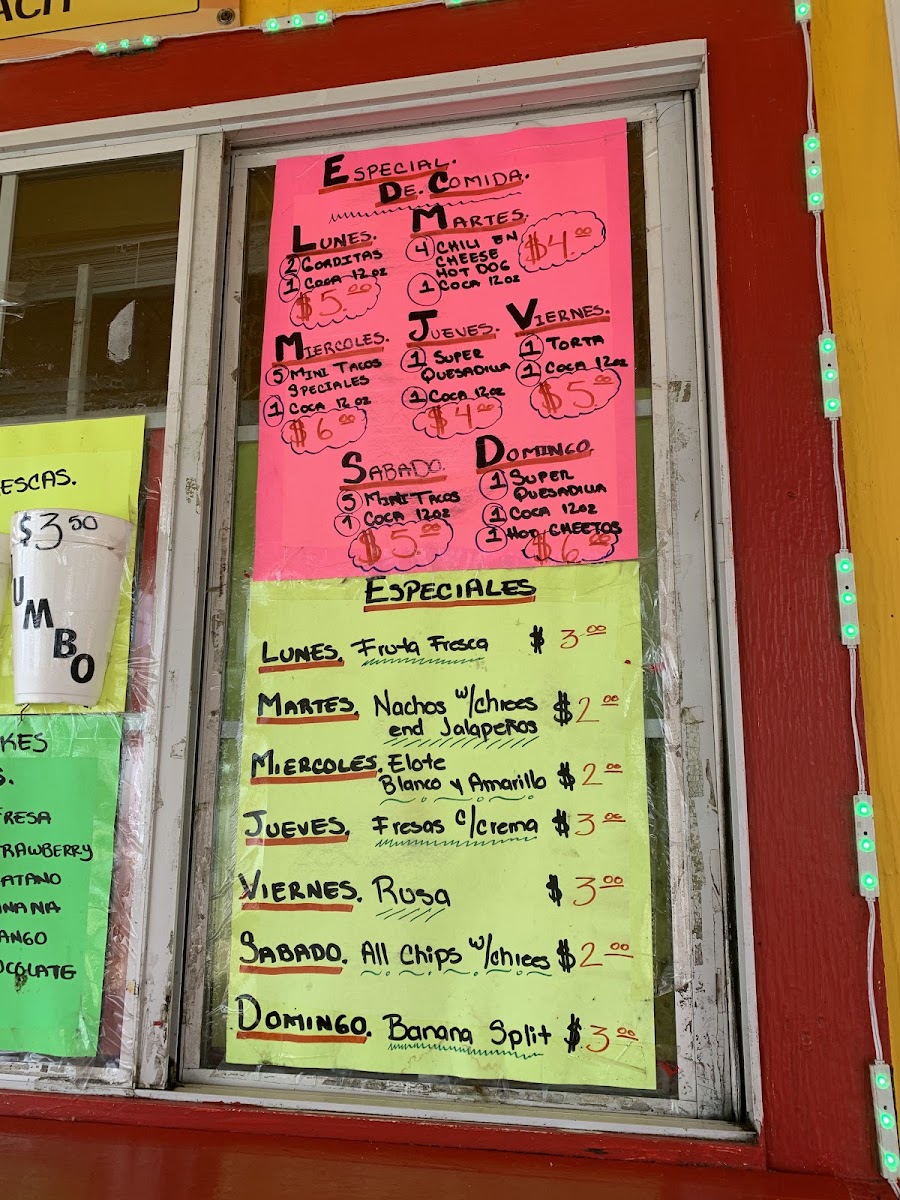 ESPECIAL.
DE. COMIDA.
LUNES.
2 GORDITAS
1 COCA 12 OZ
$5.00
MARTES.
4 CHILI EN
CHEESE
HOT DOG
1 COCA 12 OZ
$4.00
MIERCOLES.
5 MINI TACOS
SPECIALES
1 COCA 12 OZ
$6.00
JUEVES.
1 SUPER
QUESADILLA
1 COCA 12 OZ
$4.00
VIERNES.
1 TORTA
1 COCA 12 OZ
$5.00
SABADO.
5 MINI TACOS
1 COCA 12 OZ
$5.00
DOMINGO.
1 SUPER
QUESADILLA
1 COCA 12 OZ
1 HOT CHEETOS
$6.00
ESPECIALES
LUNES. Fruta Fresca $3.00
MARTES. Nachos w/chees
end Jalapeños $2.00
MIERCOLES. Elote
Blanco y Amarillo $2.00
JUEVES. Fresas c/crema $3.00
VIERNES. Rusa $3.00
SABADO. All Chips w/chees $2.00
DOMINGO. Banana Split $3.00
ESCAS.
$3.50
UMBO
KES
S.
FRESA
RAWBERRY
ATANO
NANA
ANGO
OCOLATE